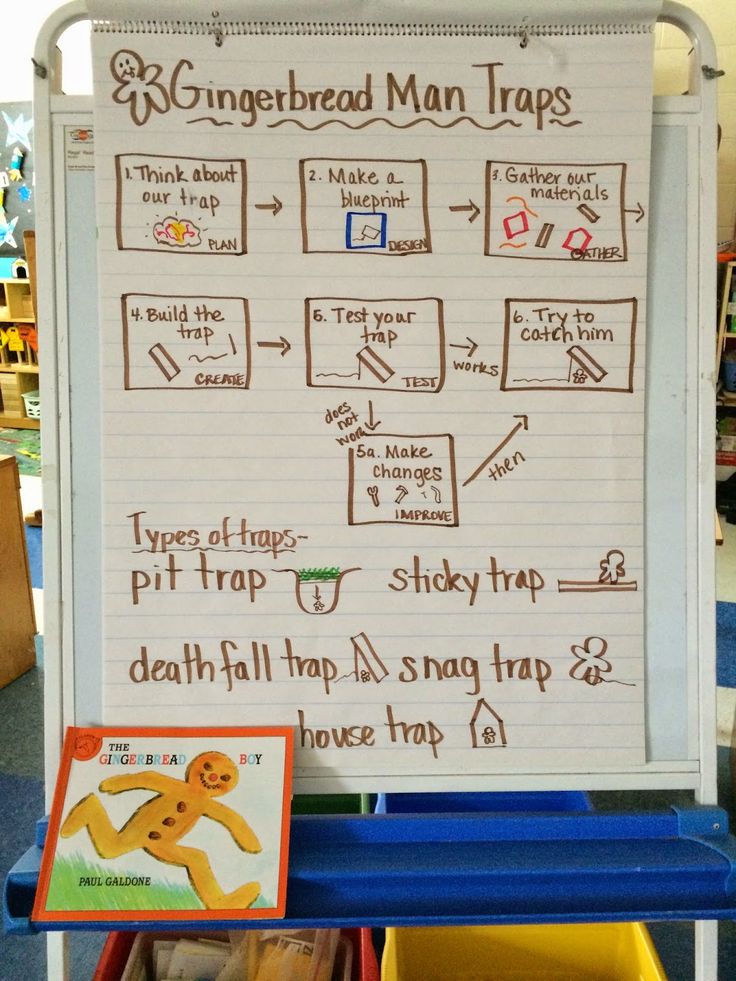 Gingerbread Man Traps
1. Think about
our trap
PLAN
2. Make a
blueprint
DESIGN
3. Gather our
materials
GATHER
4. Build the
trap
CREATE
5. Test your
trap
TEST
works
6. Try to
catch him
does
not
work
5a. Make
changes
IMPROVE
then
Types of traps-
pit trap
sticky trap
death fall trap
snag trap
house trap
THE
GINGERBREAD BOY
PAUL GALDONE